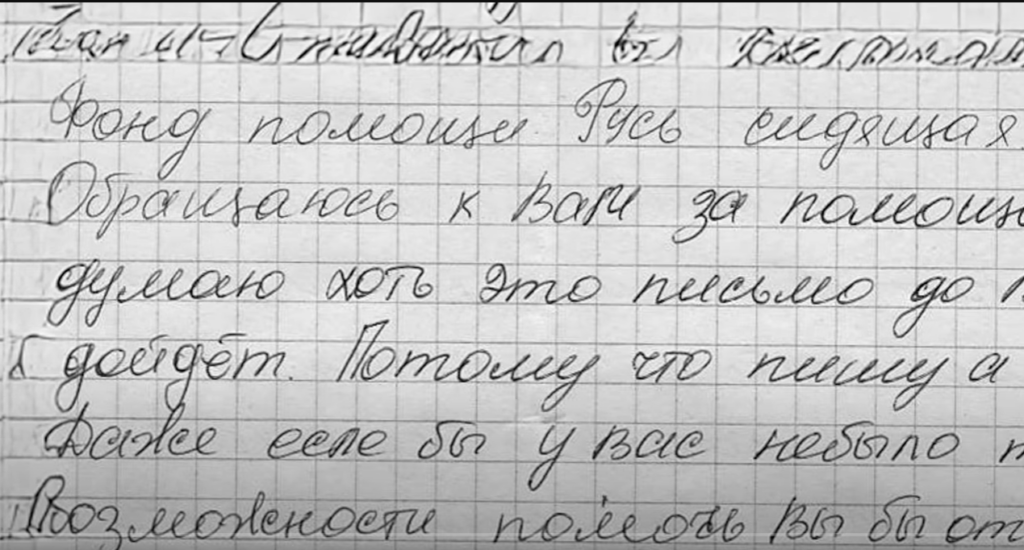 Фонд помощи Русь сидящая
Обращаюсь к Вам за помощ
думаю хоть это письмо до
дойдёт. Потому что пишу а
Даже есле бы у вас небыло
Возможности помочь Вы бы от